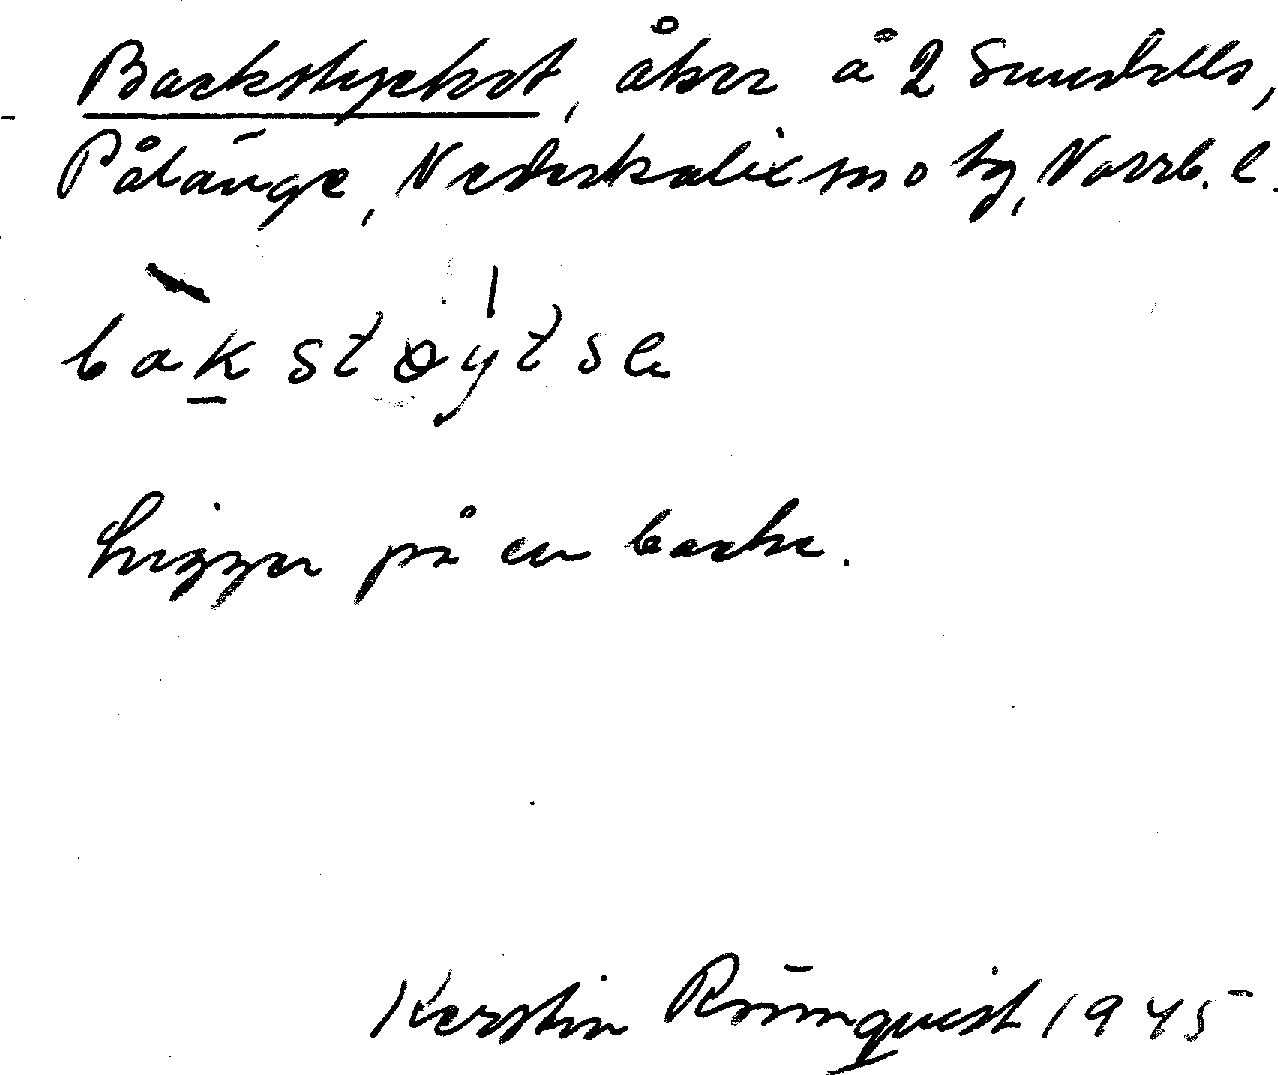 Backstycket, åker å 2 Sundells,
Pålänge, Nederkalix sn o tg, Norrb. l.
bàkstøýtse
Ligger på en backe.
Kerstin Rönnquist 1945